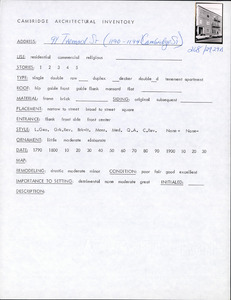 CAMBRIDGE ARCHITECTURAL INVENTORY
ADDRESS: 91 Tremont St (1190-1194 Cambridge St)
USE: residential commercial religious
STORIES: 1 2 3 4 5
TYPE: single double row duplex decker double d tenement apartment
ROOF: hip gable front gable flank mansard flat
MATERIAL: frame brick SIDING: original subsequent
PLACEMENT: narrow to street broad to street square
ENTRANCE: flank front side front center
ORNAMENT: little moderate elaborate
DATE: 1790 1800 10 20 30 40 50 60 70 80 90 1900 10 20 30
MAP:
REMODELING: drastic moderate minor CONDITION: poor fair good excellent
IMPORTANCE TO SETTING: detrimental none moderate great INITIALED:
DESCRIPTION: